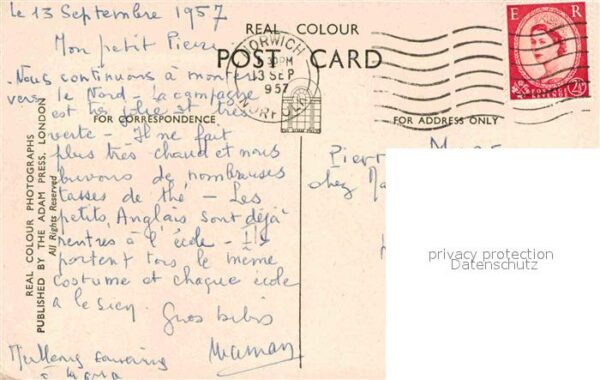 le 13 Septembre 1957
Mon petit Pierre
Nous continuons à monter
vers le Nord - La campagne
est très jolie et très
verte - Il ne fait
plus très chaud et nous
buvons de nombreuses
tasses de thé - Les
petits Anglais sont déjà
rentrés à l'école - Ils
portent tous le même
costume et chaque école
a le sien. Gros bibis
Maman
REAL COLOUR
POST CARD
FOR CORRESPONDENCE
FOR ADDRESS ONLY
REAL COLOUR PHOTOGRAPHS
PUBLISHED BY THE ADAM PRESS, LONDON
All Rights Reserved
NORWICH
13 SEP
1957
NORFOLK
E R
POSTAGE
REVENUE
2½
chez
privacy protection
Datenschutz